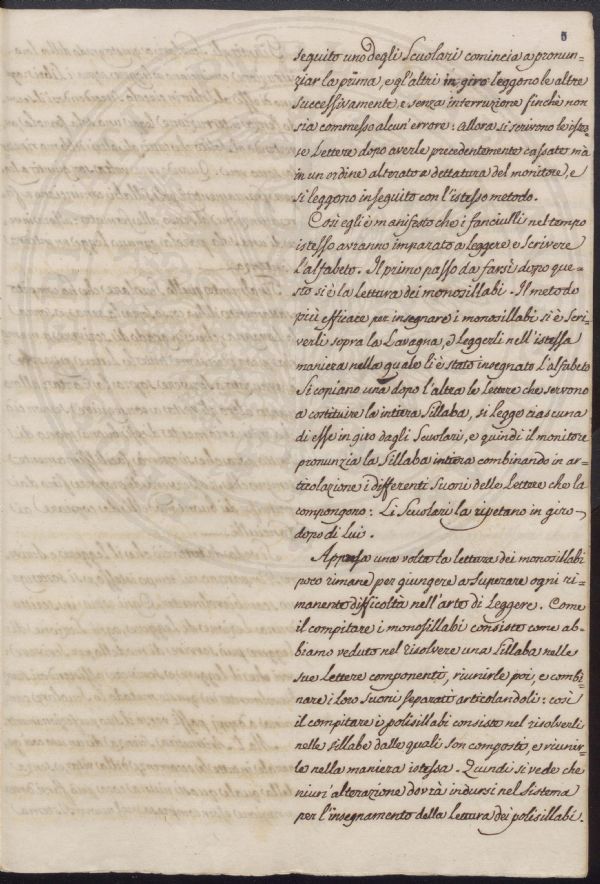 5
seguito uno degli Scuolari comincia a pronun=
ziar la prima, e gl'altri in giro leggono le altre
successivamente, e senza interruzione finchè non
sia commesso alcun'errore: allora si scrivono le istes=
se Lettere dopo averle precedentemente cassate mà
in un ordine alterato a dettatura del monitore, e
si leggono in seguito con l'istesso metodo.
Così egli è manifesto che i fanciulli nel tempo
istesso avranno imparato a leggere e scrivere
l'alfabeto. Il primo passo da farsi dopo que=
sto si è la lettura dei monosillabi. Il metodo
più efficace per insegnare i monosillabi si è scri=
verli sopra la Lavagna, e leggerli nell'istessa
maniera nella quale li è stato insegnato l'alfabeto
Si copiano una dopo l'altra le lettere che servono
a costituire la intiera Sillaba, si legge ciascuna
di esse in giro dagli Scuolari, e quindi il monitore
pronunzia la Sillaba intiera combinando in ar=
ticolazione i differenti Suoni delle Lettere che la
compongono: Li Scuolari la ripetano in giro
dopo di Lui.
Appresa una volta la lettura dei monosillabi
poco rimane per giungere a Superare ogni ri=
manente difficoltà nell'arte di Leggere. Come
il compitare i monosillabi consiste come ab=
biamo veduto nel risolvere una Sillaba nelle
sue Lettere componenti, riunirle poi, e combi=
nare i loro Suoni separati articolandoli: così
il compitare i polisillabi consiste nel risolverli
nelle sillabe dalle quali son composti, e riunir=
le nella maniera istessa. Quindi si vede che
niun'alterazione dovrà indursi nel Sistema
per l'insegnamento della Lettura dei polisillabi.